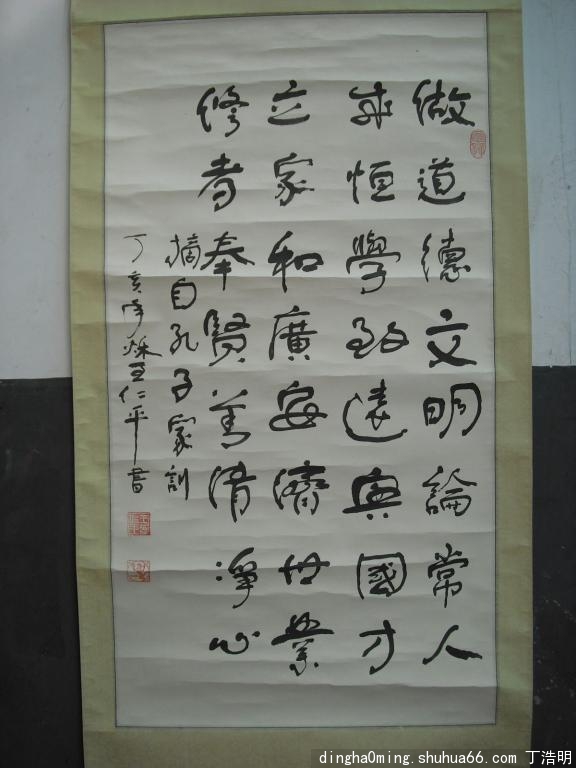 做道德文明論常人
求恒學致遠興國才
立家和廣安濟世業
修孝奉賢善清淨心
摘自孔子家訓
丁亥年秋王仁平書
dingha0ming.shuhua66.com 丁浩明